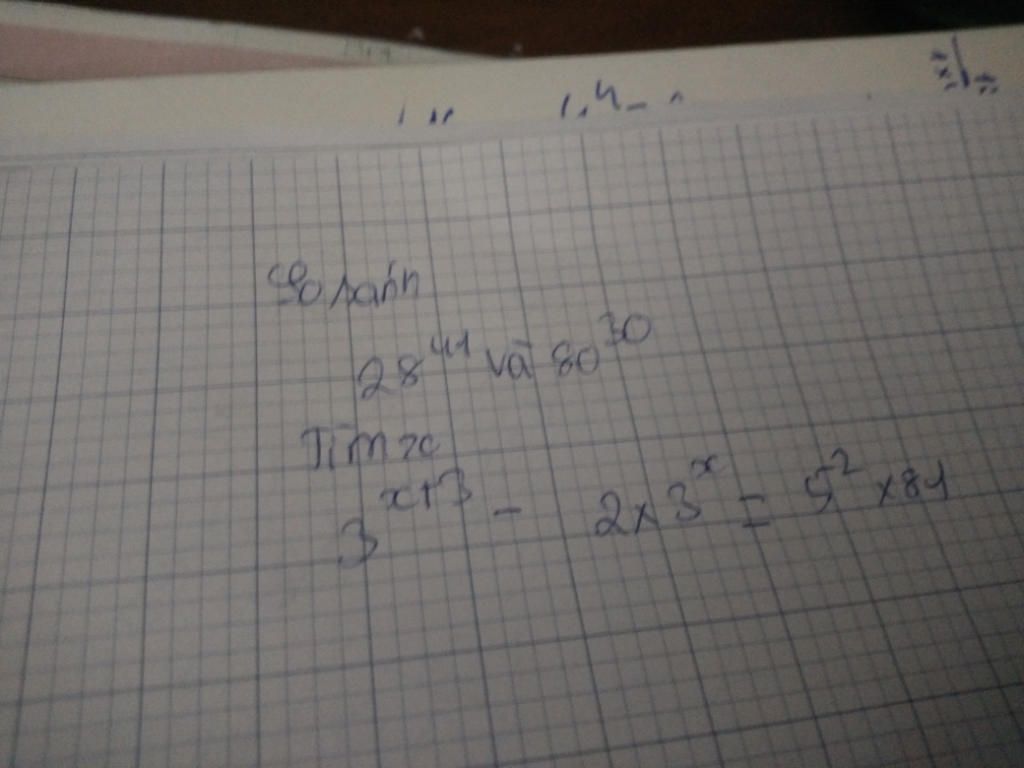 So sánh
28⁴¹ và 80³⁰
Tìm x
3ˣ⁺³ - 2 x 3ˣ = 5² x 81